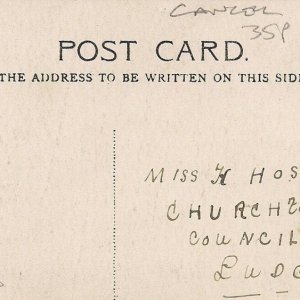 CANCEL
35p
POST CARD.
THE ADDRESS TO BE WRITTEN ON THIS SID
MISS H HOS
CHURCH
COUNCIL
LUDG